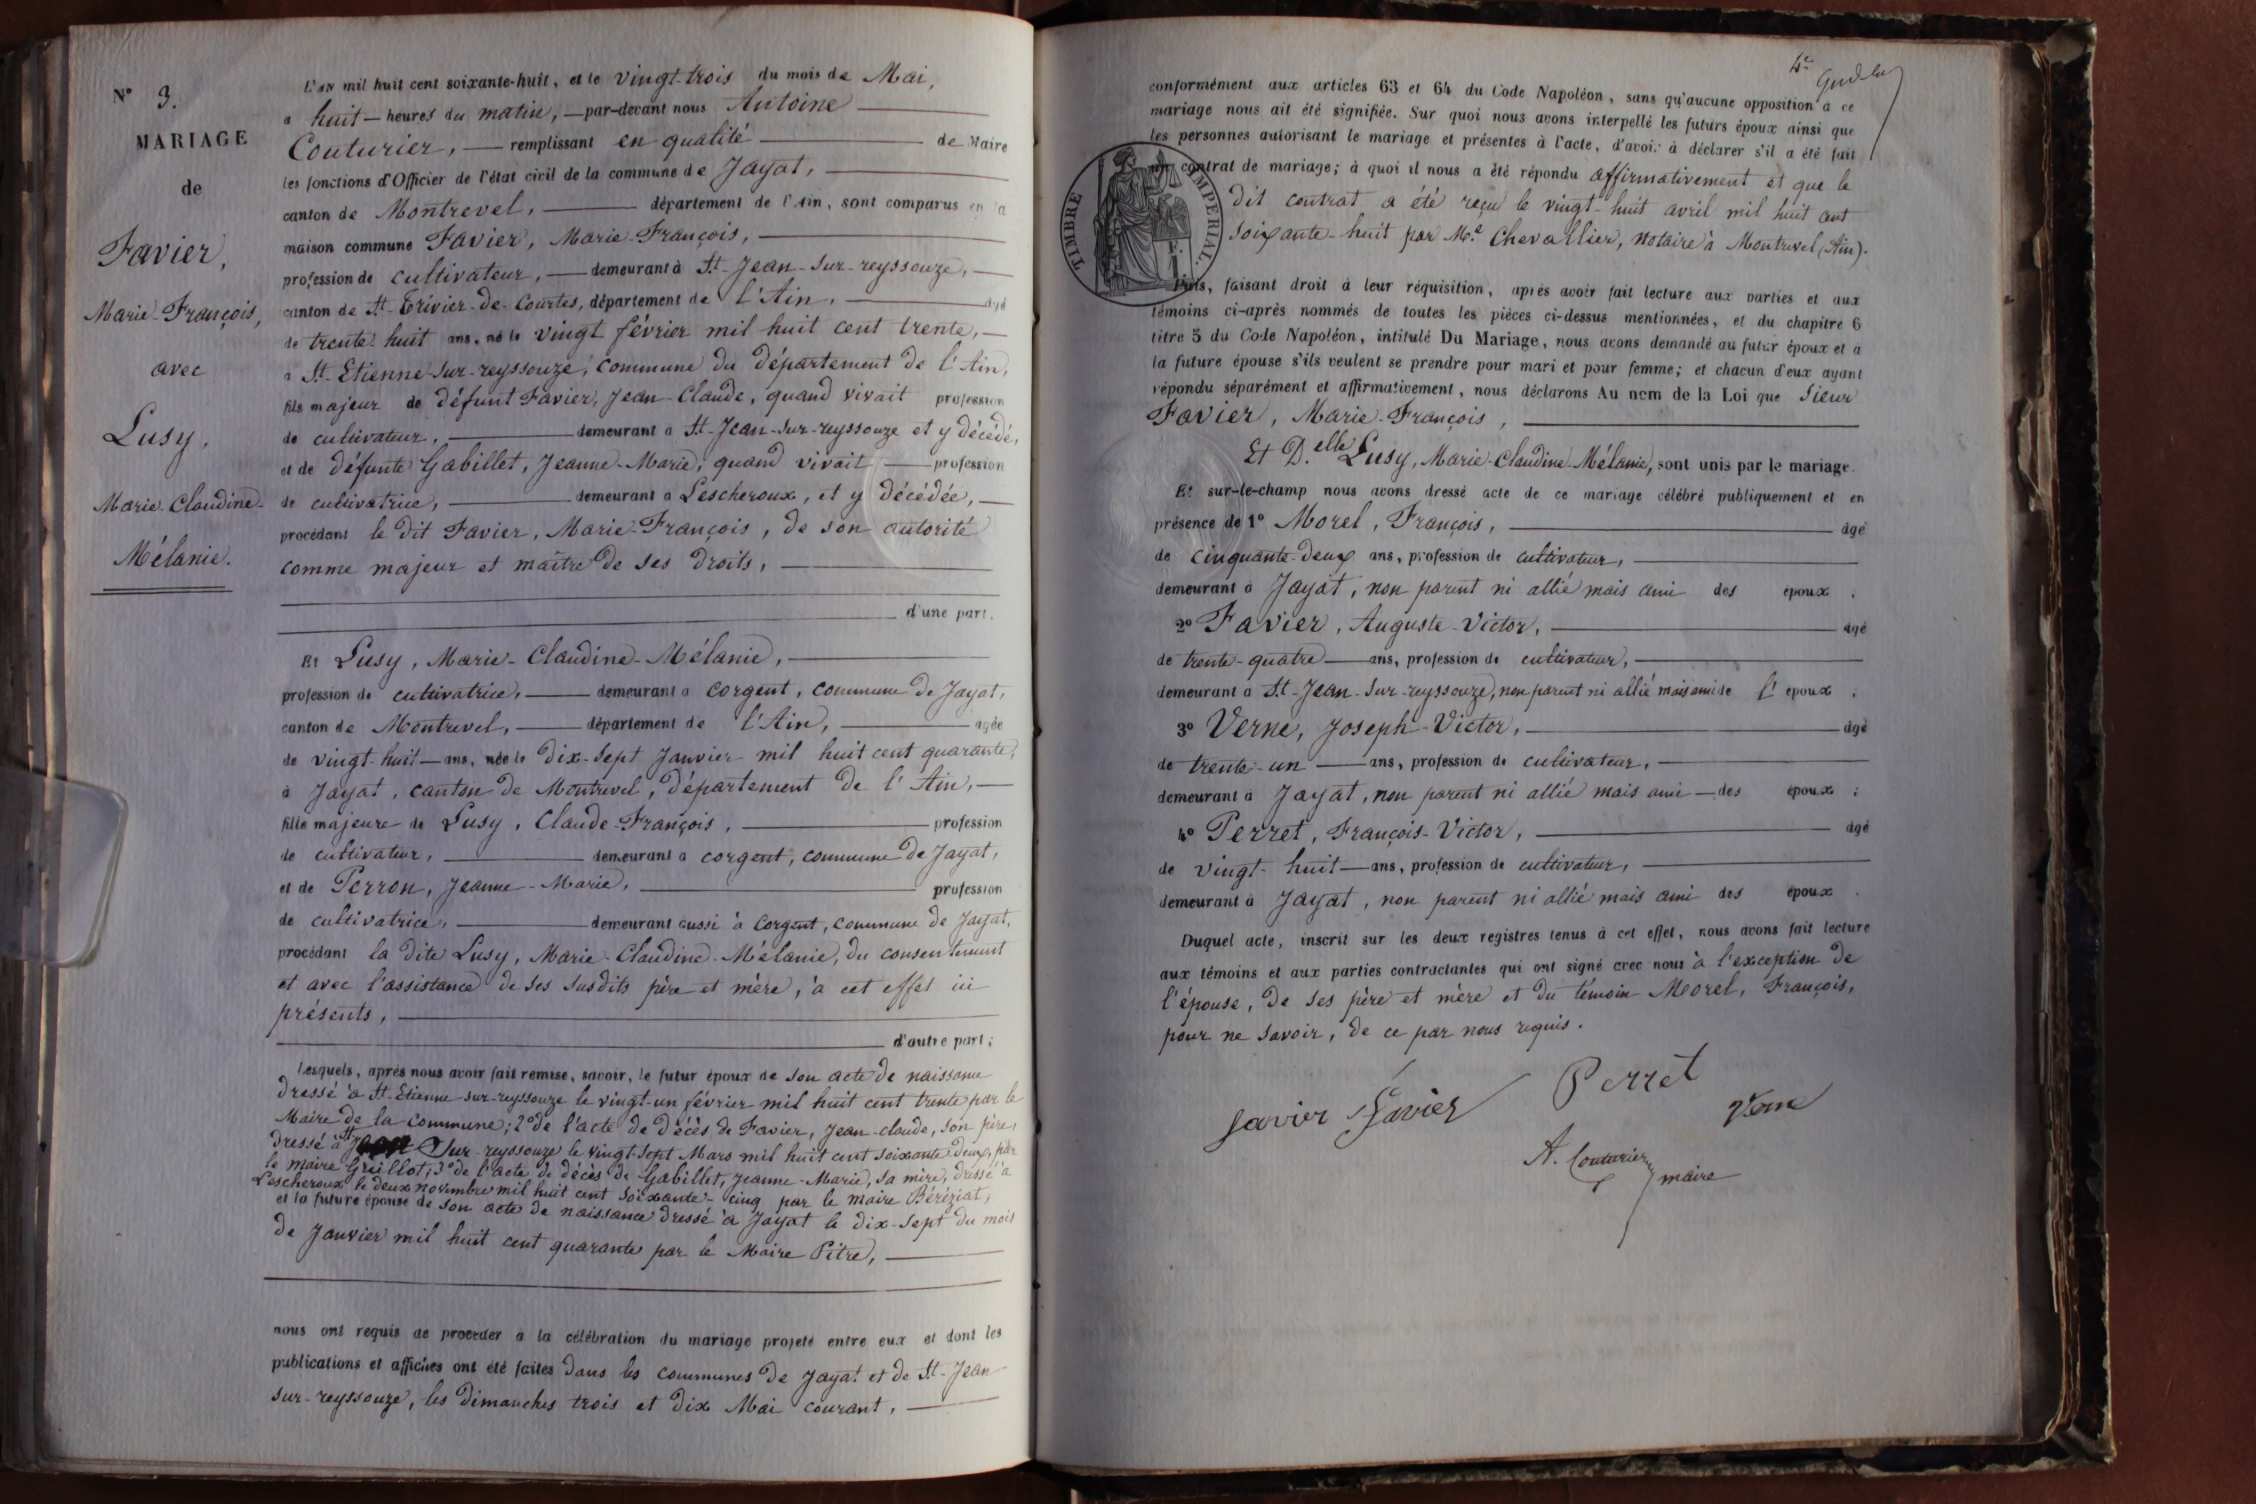 N° 3.
MARIAGE
de
Favier,
Marie-François,
avec
Lusy,
Marie-Claudine-
Mélanie.
L'AN mil huit cent soixante-huit, et le vingt-trois du mois de Mai,
a huit heures du matin, par-devant nous Antoine
Couturier, remplissant en qualité de Maire
les fonctions d'Officier de l'état civil de la commune de Jayat,
canton de Montrevel, département de l'Ain, sont comparus en la
maison commune Favier, Marie-François,
profession de cultivateur, demeurant à St-Jean-sur-reyssouze,
canton de St-Trivier-de-Courtes, département de l'Ain, agé
de trente-huit ans, né le vingt février mil huit cent trente,
à St-Etienne-sur-reyssouze, commune du département de l'Ain,
fils majeur de défunt Favier, Jean-Claude, quand vivait profession
de cultivateur, demeurant a St-Jean-sur-reyssouze et y décédé,
et de défunte Gabillet, Jeanne-Marie, quand vivait profession
de cultivatrice, demeurant a Lescheroux, et y décédée,
procédant le dit Favier, Marie-François, de son autorité
comme majeur et maître de ses droits,
d'une part.
Et Lusy, Marie-Claudine-Mélanie,
profession de cultivatrice, demeurant a corgent, commune de Jayat,
canton de Montrevel, département de l'Ain, agée
de vingt-huit ans, née le dix-sept Janvier mil huit cent quarante,
à Jayat, canton de Montrevel, département de l'Ain,
fille majeure de Lusy, Claude-François, profession
de cultivateur, demeurant a corgent, commune de Jayat,
et de Perron, Jeanne-Marie, profession
de cultivatrice, demeurant aussi à Corgent, commune de Jayat,
procédant la dite Lusy, Marie-Claudine-Mélanie, du consentement
et avec l'assistance de ses susdits père et mère, à cet effet ici
présents,
d'autre part;
Lesquels, après nous avoir fait remise, savoir, le futur époux de son acte de naissance
dressé à St-Etienne-sur-reyssouze le vingt-un février mil huit cent trente par le
Maire de la commune; 2° de l'acte de décès de Favier, Jean-Claude, son père,
dressé à St Jean sur-reyssouze le vingt-sept Mars mil huit cent soixante-deux, par
le maire Greillot; 3° de l'acte de décès de Gabillet, Jeanne-Marie, sa mère, dressé à
Lescheroux le deux novembre mil huit cent soixante-cinq par le maire Béréziat;
et la future épouse de son acte de naissance dressé à Jayat le dix-sept du mois
de Janvier mil huit cent quarante par le Maire Pitre,
nous ont requis de procéder a la célébration du mariage projeté entre eux et dont les
publications et affiches ont été faites dans les communes de Jayat et de St-Jean-
sur-reyssouze, les dimanches trois et dix Mai courant,
conformément aux articles 63 et 64 du Code Napoléon, sans qu'aucune opposition à ce
mariage nous ait été signifiée. Sur quoi nous avons interpellé les futurs époux ainsi que
les personnes autorisant le mariage et présentes à l'acte, d'avoir à déclarer s'il a été fait
un contrat de mariage; à quoi il nous a été répondu affirmativement et que le
dit contrat a été reçu le vingt-huit avril mil huit cent
soixante-huit par Me. Chevallier, notaire à Montrevel (Ain).
TIMBRE IMPERIAL.
Puis, faisant droit à leur réquisition, après avoir fait lecture aux parties et aux
témoins ci-après nommés de toutes les pièces ci-dessus mentionnées, et du chapitre 6
titre 5 du Code Napoléon, intitulé Du Mariage, nous avons demandé au futur époux et a
la future épouse s'ils veulent se prendre pour mari et pour femme; et chacun d'eux ayant
répondu séparément et affirmativement, nous déclarons Au nom de la Loi que sieur
Favier, Marie-François,
Et D.elle Lusy, Marie-Claudine-Mélanie, sont unis par le mariage.
Et sur-le-champ nous avons dressé acte de ce mariage célébré publiquement et en
présence de 1° Morel, François, agé
de cinquante-deux ans, profession de cultivateur,
demeurant à Jayat, non parent ni allié mais ami des époux.
2° Favier, Auguste-Victor, agé
de trente-quatre ans, profession de cultivateur,
demeurant a St-Jean-sur-reyssouze, non parent ni allié mais ami de l'époux;
3° Verne, Joseph-Victor, agé
de trente-un ans, profession de cultivateur,
demeurant à Jayat, non parent ni allié mais ami des époux;
4° Perret, François-Victor, agé
de vingt-huit ans, profession de cultivateur,
demeurant à Jayat, non parent ni allié mais ami des époux.
Duquel acte, inscrit sur les deux registres tenus à cet effet, nous avons fait lecture
aux témoins et aux parties contractantes qui ont signé avec nous à l'exception de
l'épouse, de ses père et mère et du témoin Morel, François,
pour ne savoir, de ce par nous requis.
favier Favier Perret
Verne
A. Couturier
maire